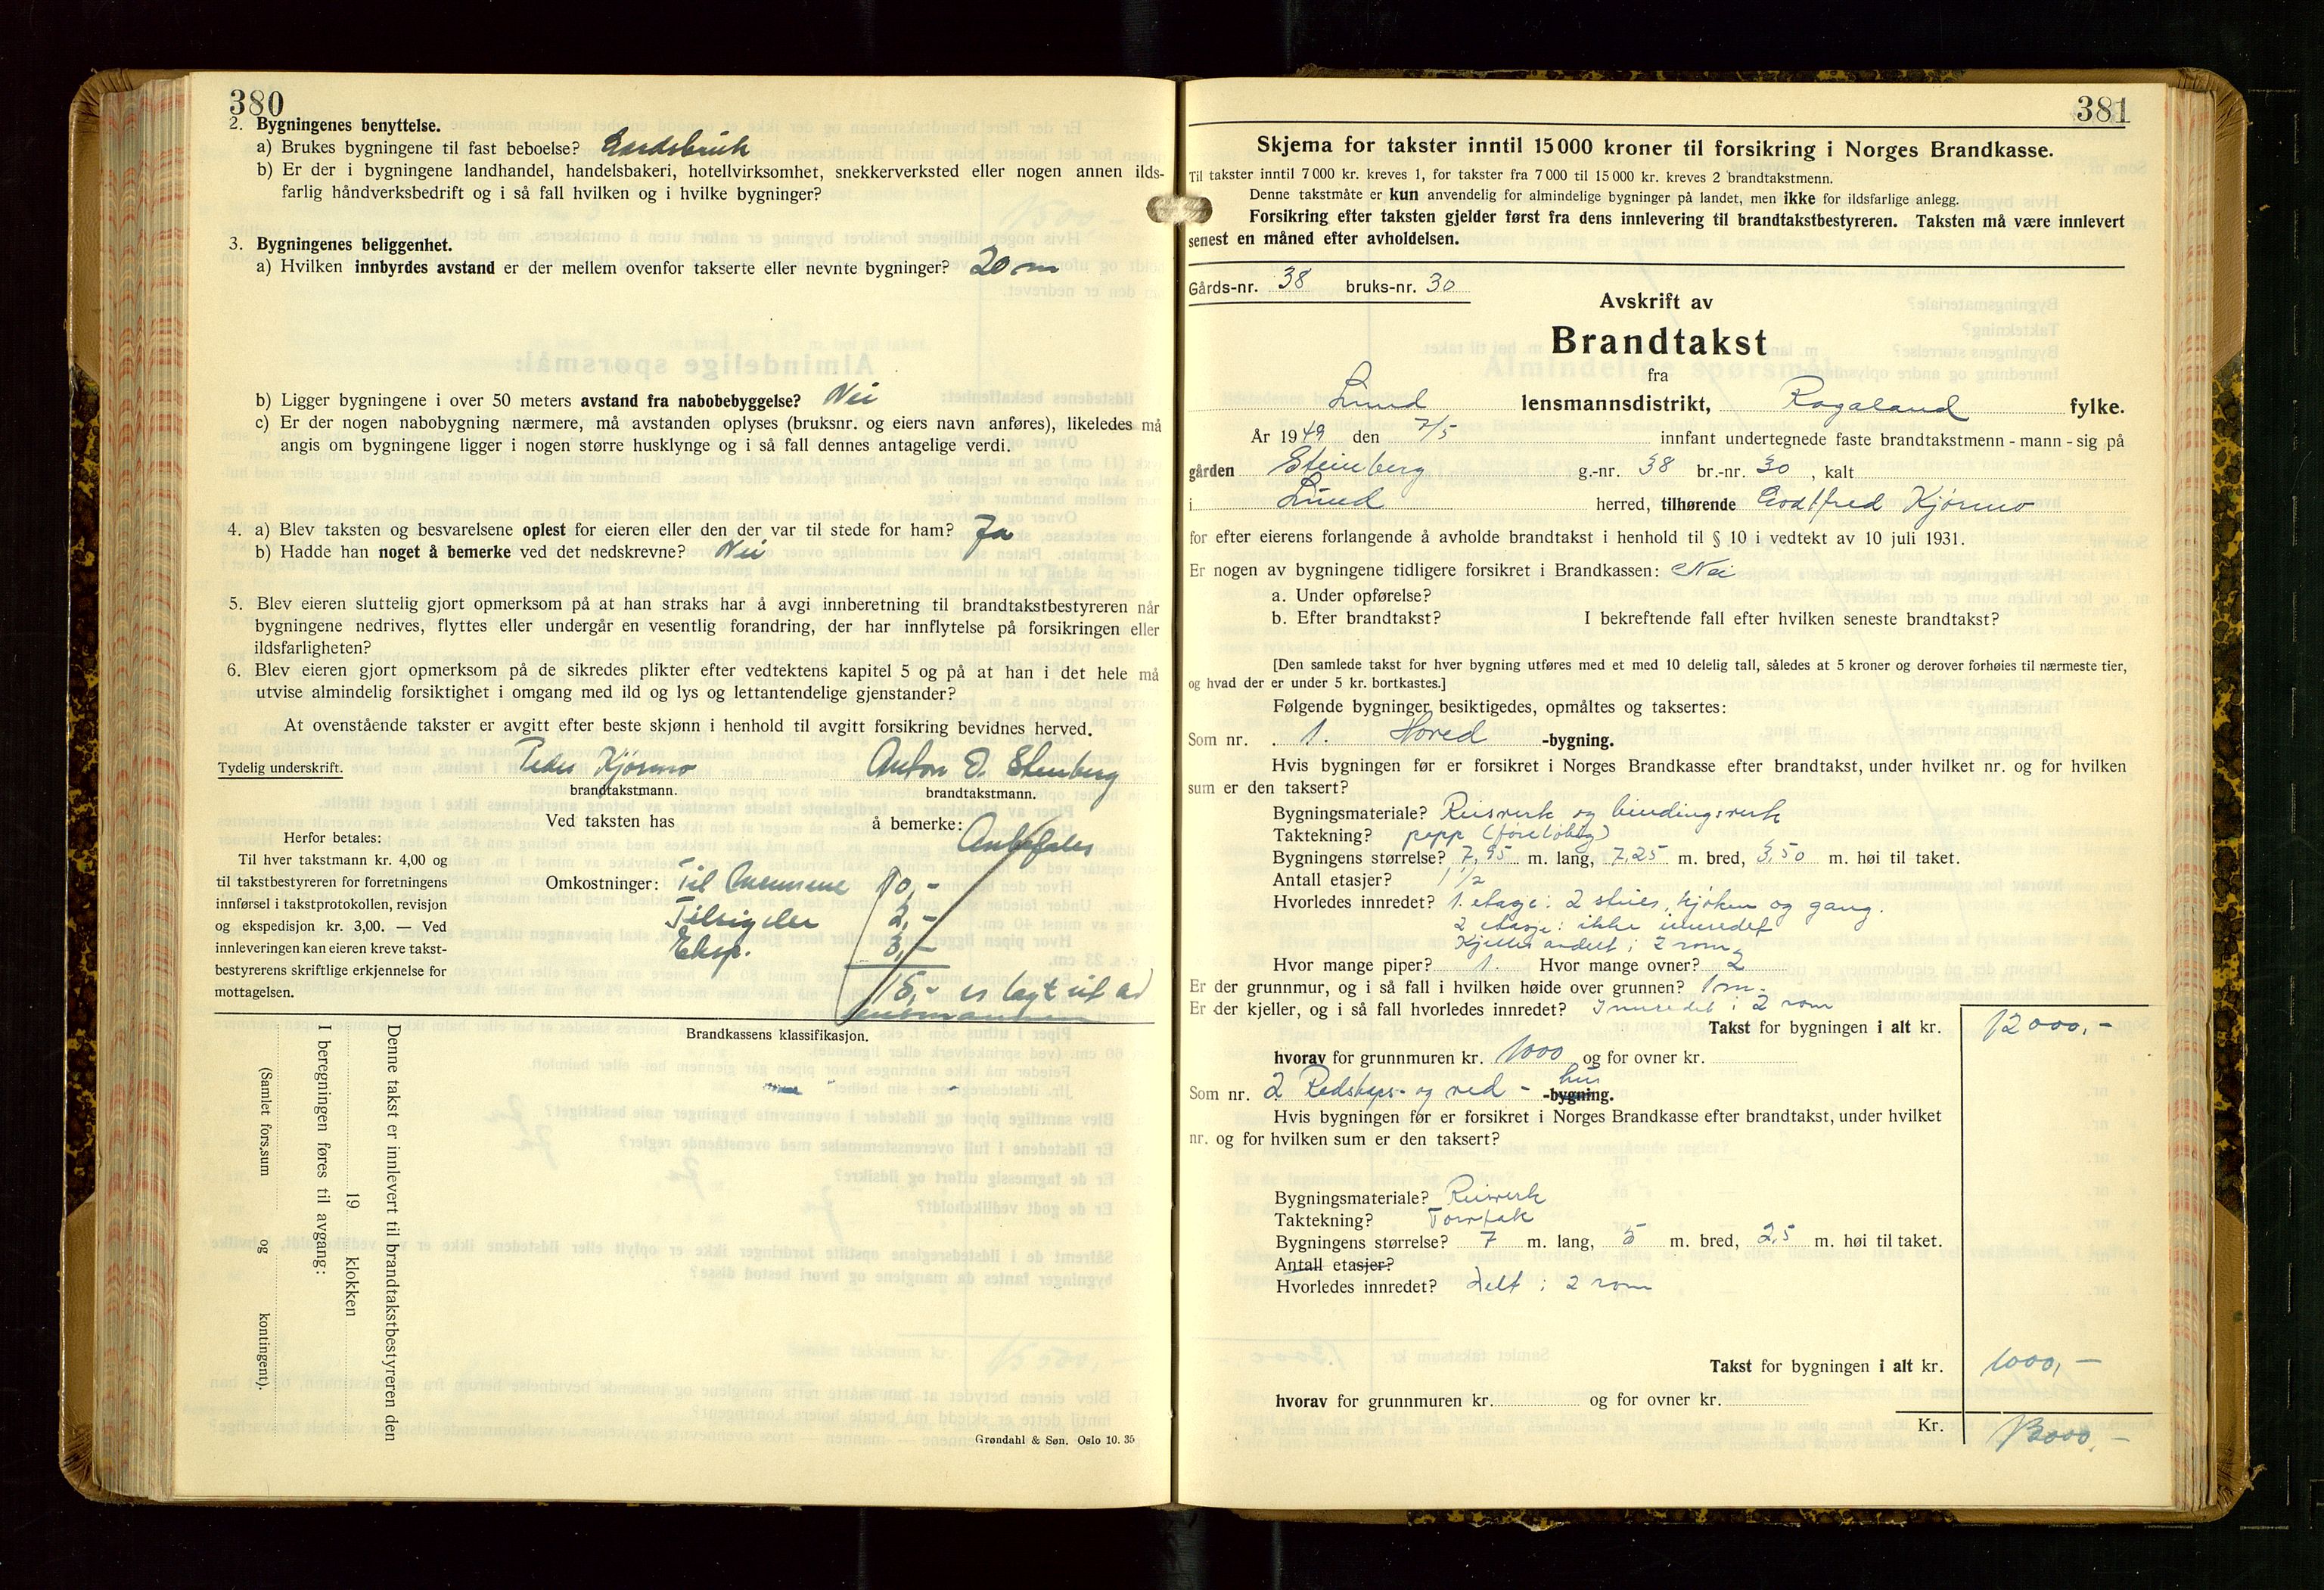 380
2. Bygningenes benyttelse.
a) Brukes bygningene til fast beboelse? Gardsbruk
b) Er der i bygningene landhandel, handelsbakeri, hotellvirksomhet, snekkerverksted eller nogen annen ilds-
farlig håndverksbedrift og i så fall hvilken og i hvilke bygninger?
3. Bygningenes beliggenhet.
a) Hvilken innbyrdes avstand er der mellem ovenfor takserte eller nevnte bygninger? 20 m
b) Ligger bygningene i over 50 meters avstand fra nabobebyggelse? Nei
c) Er der nogen nabobygning nærmere, må avstanden oplyses (bruksnr. og eiers navn anføres), likeledes må
angis om bygningene ligger i nogen større husklynge og i så fall dennes antagelige verdi.
4. a) Blev taksten og besvarelsene oplest for eieren eller den der var til stede for ham? Ja
b) Hadde han noget å bemerke ved det nedskrevne? Nei
5. Blev eieren sluttelig gjort opmerksom på at han straks har å avgi innberetning til brandtakstbestyreren når
bygningene nedrives, flyttes eller undergår en vesentlig forandring, der har innflytelse på forsikringen eller
ildsfarligheten?
6. Blev eieren gjort opmerksom på de sikredes plikter efter vedtektens kapitel 5 og på at han i det hele må
utvise almindelig forsiktighet i omgang med ild og lys og lettantendelige gjenstander?
At ovenstående takster er avgitt efter beste skjønn i henhold til avgitt forsikring bevidnes herved.
Tydelig underskrift. Peder Kjørmo Anton O. Steinberg
brandtakstmann. brandtakstmann.
Ved taksten has å bemerke: Anbefales
Herfor betales:
Til hver takstmann kr. 4,00 og
til takstbestyreren for forretningens
innførsel i takstprotokollen, revisjon
og ekspedisjon kr. 3,00. — Ved
innleveringen kan eieren kreve takst-
bestyrerens skriftlige erkjennelse for
mottagelsen.
Omkostninger: Til mennene 10,-
Tilsigelse 2,-
Eksp. 3,-
15,- er lagt ut av
lensmannen
Brandkassens klassifikasjon.
Denne takst er innlevert til brandtakstbestyreren den
19 klokken
I beregningen føres til avgang:
(Samlet fors.sum og kontingent).
Grøndahl & Søn. Oslo 10. 35
381
Skjema for takster inntil 15 000 kroner til forsikring i Norges Brandkasse.
Til takster inntil 7 000 kr. kreves 1, for takster fra 7 000 til 15 000 kr. kreves 2 brandtakstmenn.
Denne takstmåte er kun anvendelig for almindelige bygninger på landet, men ikke for ildsfarlige anlegg.
Forsikring efter taksten gjelder først fra dens innlevering til brandtakstbestyreren. Taksten må være innlevert
senest en måned efter avholdelsen.
Gårds-nr. 38 bruks-nr. 30
Avskrift av
Brandtakst
fra
Lund lensmannsdistrikt, Rogaland fylke.
År 1949 den 7/5 innfant undertegnede faste brandtakstmenn - mann - sig på
gården Steinberg g.-nr. 38 br.-nr. 30, kalt
i Lund herred, tilhørende Godtfred Kjørmo
for efter eierens forlangende å avholde brandtakst i henhold til § 10 i vedtekt av 10 juli 1931.
Er nogen av bygningene tidligere forsikret i Brandkassen: Nei
a. Under opførelse?
b. Efter brandtakst? I bekreftende fall efter hvilken seneste brandtakst?
[Den samlede takst for hver bygning utføres med et med 10 delelig tall, således at 5 kroner og derover forhøies til nærmeste tier,
og hvad der er under 5 kr. bortkastes.]
Følgende bygninger besiktigedes, opmåltes og taksertes:
Som nr. 1. Hoved -bygning.
Hvis bygningen før er forsikret i Norges Brandkasse efter brandtakst, under hvilket nr. og for hvilken
sum er den taksert?
Bygningsmateriale? Reisverk og bindingsverk
Taktekning? papp (foreløbig)
Bygningens størrelse? 7,95 m. lang, 7,25 m. bred, 3,50 m. høi til taket.
Antall etasjer? 1 1/2
Hvorledes innredet? 1. etasje: 2 stuer, kjøken og gang.
2 etasje: ikke innredet
Kjeller avdelt i 2 rom.
Hvor mange piper? 1. Hvor mange ovner? 2
Er der grunnmur, og i så fall i hvilken høide over grunnen? 1 m.
Er der kjeller, og i så fall hvorledes innredet? Innredet i 2 rom
Takst for bygningen i alt kr. 12000,-
hvorav for grunnmuren kr. 1000 og for ovner kr.
Som nr. 2 Redskaps- og ved- -bygning. hus
Hvis bygningen før er forsikret i Norges Brandkasse efter brandtakst, under hvilket
nr. og for hvilken sum er den taksert?
Bygningsmateriale? Reisverk
Taktekning? Torvtak
Bygningens størrelse? 7 m. lang, 5 m. bred, 2,5 m. høi til taket.
Antall etasjer?
Hvorledes innredet? Delt i 2 rom
Takst for bygningen i alt kr. 1000,-
hvorav for grunnmuren kr. og for ovner kr.
Kr. 13000,-